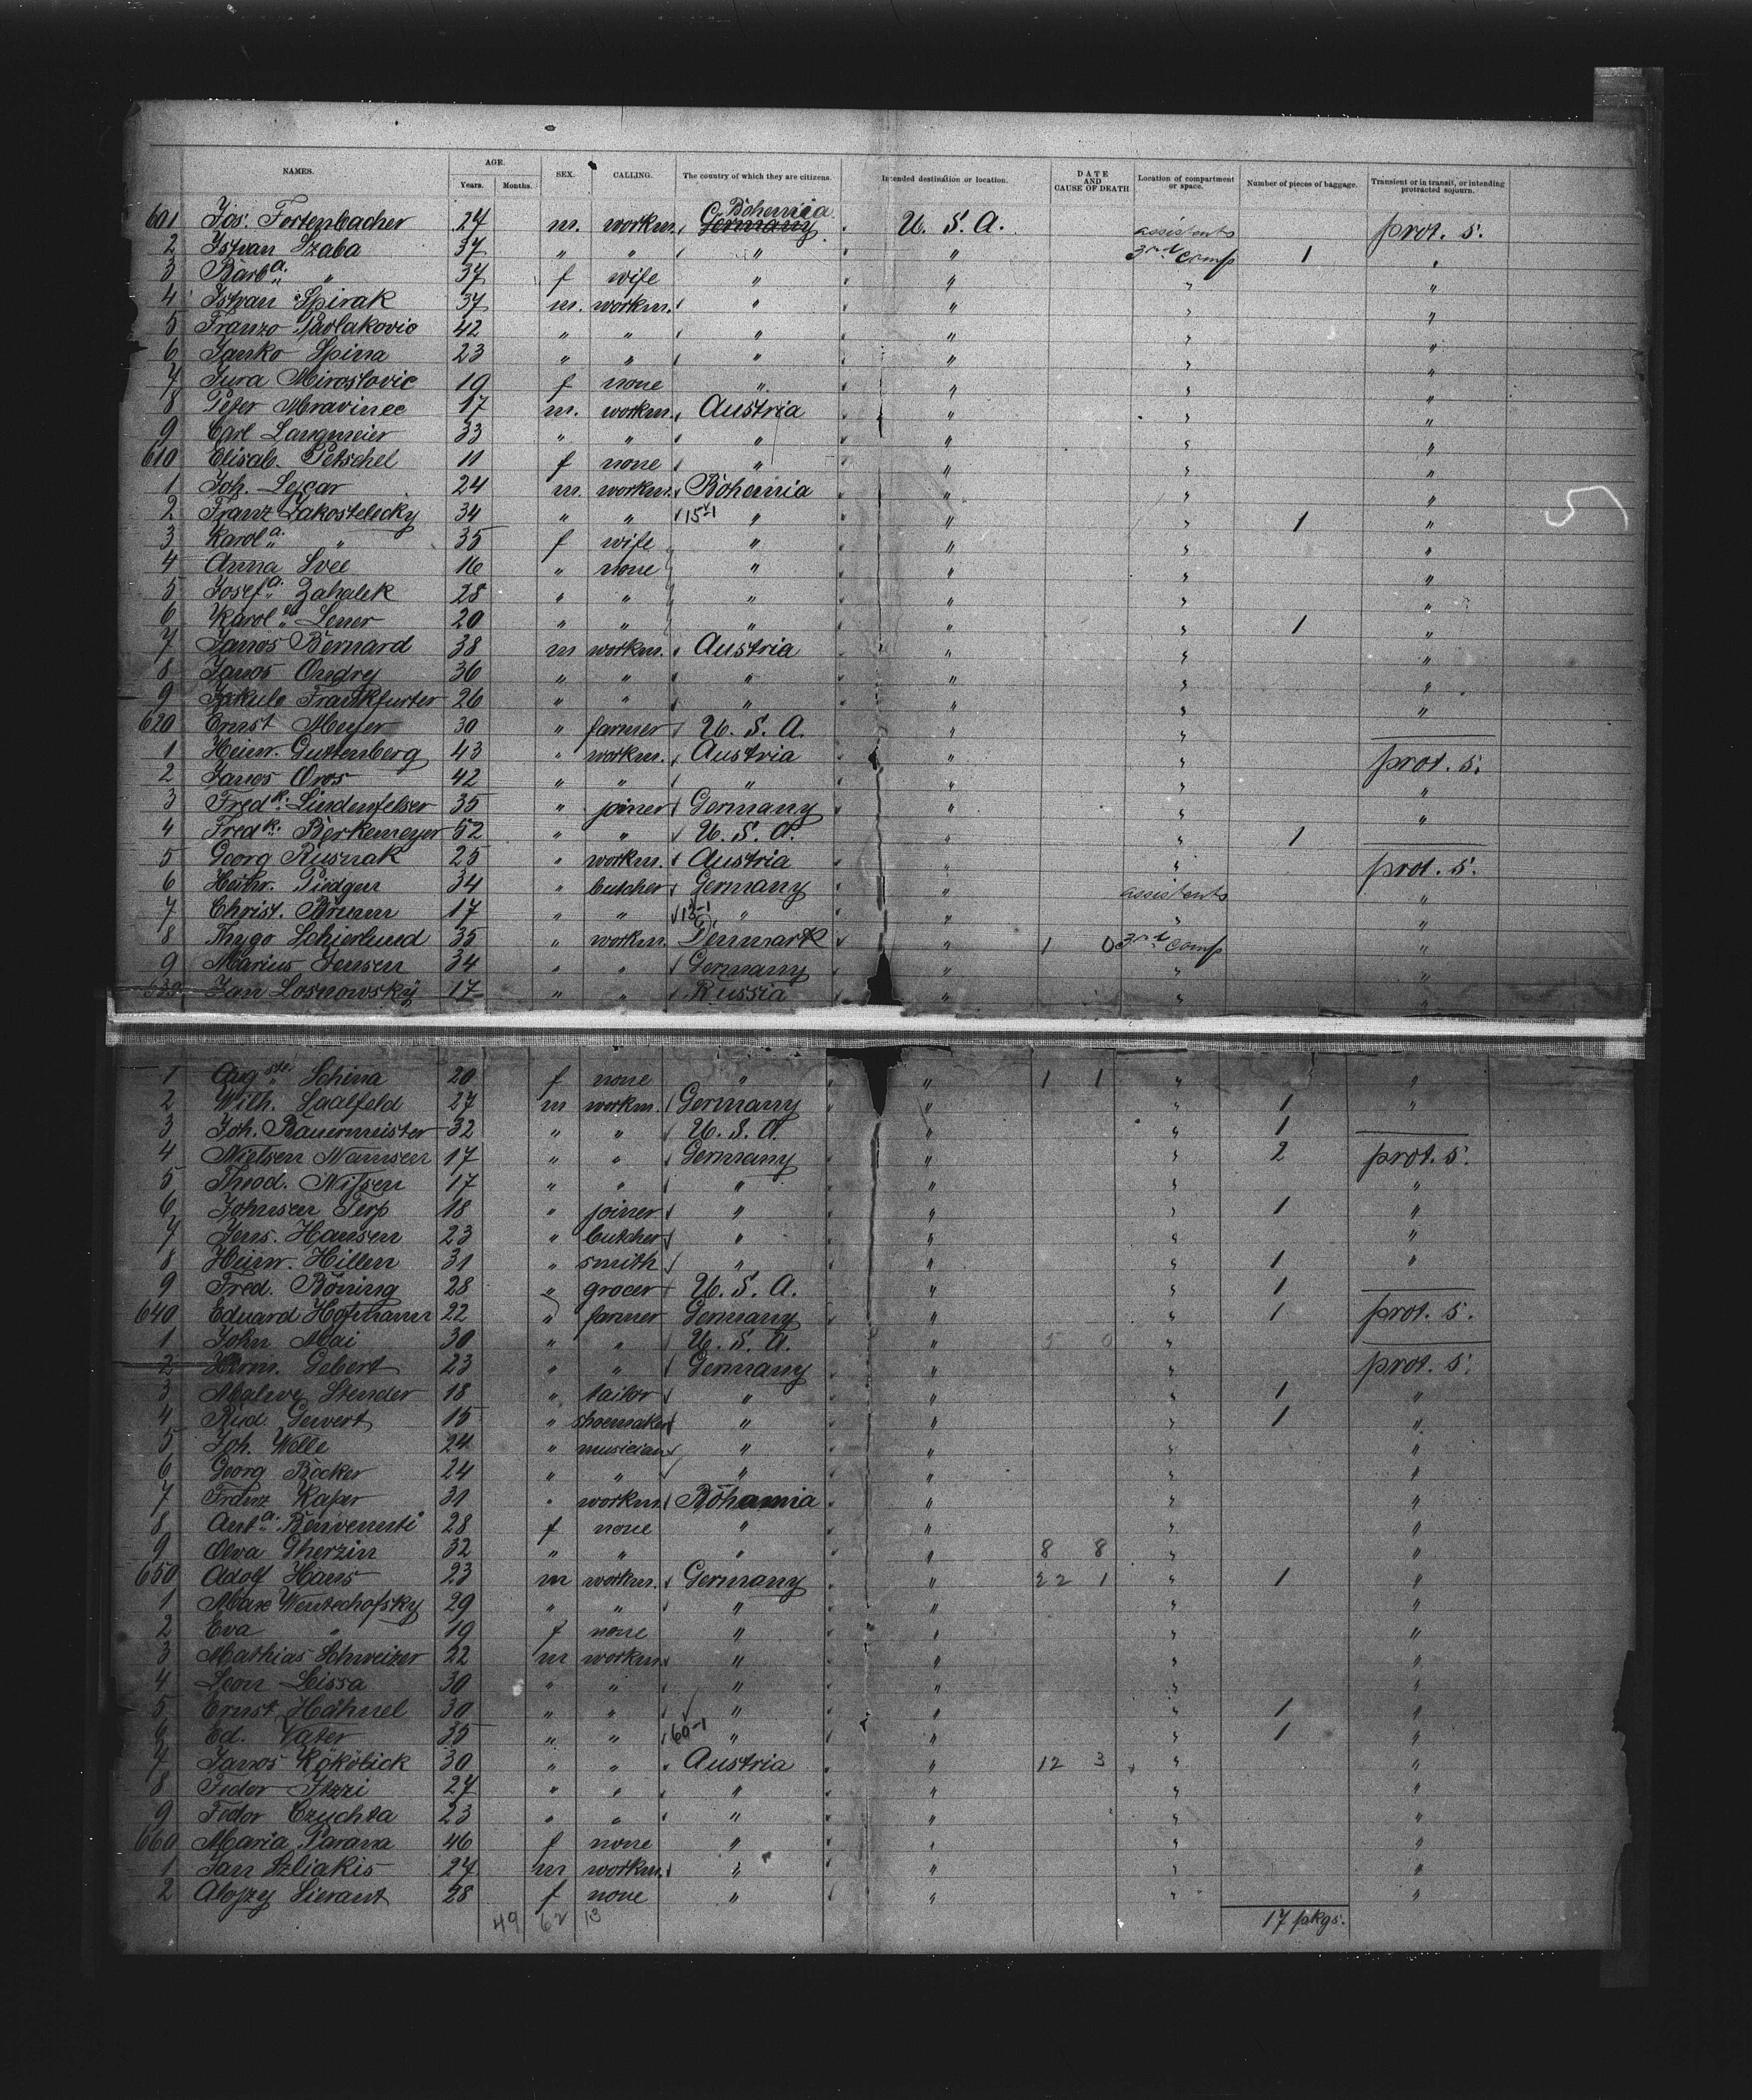 NAMES. AGE. Years. Months. SEX. CALLING. The country of which they are citizens. Intended destination or location. DATE AND CAUSE OF DEATH Location of compartment or space. Number of pieces of baggage. Transient or in transit, or intending protracted sojourn.
601 Jos. Fortenbacher 24 m. workm. Germany Bohemia U. S. A. assistents prot. s.
2 Istvan Szaba 37 " " " " 3rd comp 1 "
3 Barba. " 37 f wife " " " "
4 Istvan Spirak 37 m. workm. " " " "
5 Franzo Pavlakovic 42 " " " " " "
6 Janko Spina 23 " " " " " "
7 Jura Miroslovic 19 f none " " " "
8 Peter Mravinec 17 m. workm. Austria " " "
9 Carl Langmeier 33 " " " " " "
610 Elisab. Petschel 11 f none " " " "
1 Joh. Lejcar 24 m. workm. Bohemia " " "
2 Franz Zakostelecky 34 " " 15-1 " " " 1 "
3 Karola. " 35 f wife " " " "
4 Anna Svec 16 " none " " " "
5 Josefa. Zahalek 28 " " " " " "
6 Karola Lener 20 " " " " " 1 "
7 Janos Bernard 38 m workm. Austria " " "
8 Janos Ondrey 36 " " " " " "
9 Jakulo Frankfurter 26 " " " " " "
620 Ernst Meyer 30 " farmer U. S. A. " "
1 Heinr. Guttenberg 43 " workm. Austria " " prot. s.
2 Janos Oros 42 " " " " " "
3 Fredk. Lindenfelser 35 " joiner Germany " " "
4 Fredk. Berkemeyer 52 " " U. S. A. " 1
5 Georg Rusnak 25 " workm. Austria " " prot. s.
6 Heinr. Pudgen 34 " butcher Germany " assistents "
7 Christ. Brumm 17 " " 13-1 " " " "
8 Thygo Schierlund 35 " workm. Denmark " 1 0 3rd comp "
9 Marius Jensen 34 " " Germany " " "
630 Jan Losnowsky 17 " " Russia " " "
1 Augste. Schina 20 f none " " 1 1 " "
2 Wilh. Saalfeld 27 m workm. Germany " " 1 "
3 Joh. Bauermeister 32 " " U. S. A. " " 1
4 Nielsen Namsen 17 " " Germany " " 2 prot. s.
5 Theod. Nissen 17 " " " " " "
6 Johnsen Terp 18 " joiner " " " 1 "
7 Jens. Hansen 23 " butcher " " " "
8 Heinr. Hillen 31 " smith " " " 1 "
9 Fred. Böning 28 " grocer U. S. A. " " 1
640 Eduard Hofmann 22 " farmer Germany " " 1 prot. s.
1 John Mai 30 " " U. S. A. " 5 0 "
2 Herm. Gebert 23 " " Germany " " prot. s.
3 Malwe Stender 18 " tailor " " " 1 "
4 Rud. Gewert 15 " shoemaker " " " 1 "
5 Joh. Welle 24 " musician " " " "
6 Georg Bocker 24 " " " " " "
7 Franz Kaper 31 " workm. Bohamia " " "
8 Anta. Benvenuti 28 f none " " " "
9 Olva Gherzin 32 " " " " 8 8 " "
650 Adolf Hans 23 m workm. Germany " 22 1 " 1 "
1 Max Wentechofsky 29 " " " " " "
2 Eva " 19 f none " " " "
3 Mathias Schweizer 22 m workm. " " " "
4 Leon Leissa 30 " " " " " "
5 Ernst Hähnel 30 " " " " " 1 "
6 Ed. Vater 35 " " 60-1 " " " 1 "
7 Janos Kokolick 30 " " Austria " 12 3 " "
8 Fedor Itzzi 27 " " " " " "
9 Fedor Czuchta 23 " " " " " "
660 Maria Parana 46 f none " " " "
1 Jan Szliakis 24 m workm. " " " "
2 Alojzy Sierant 28 f none " " " "
49 62 13 17 pkgs.